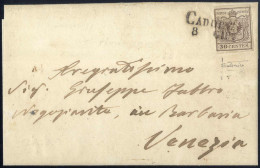 CADO
8
30 CENTES
Pregiatissimo
Sig. Giuseppe Fabbro
Negoziante, in Barbaria
Venezia